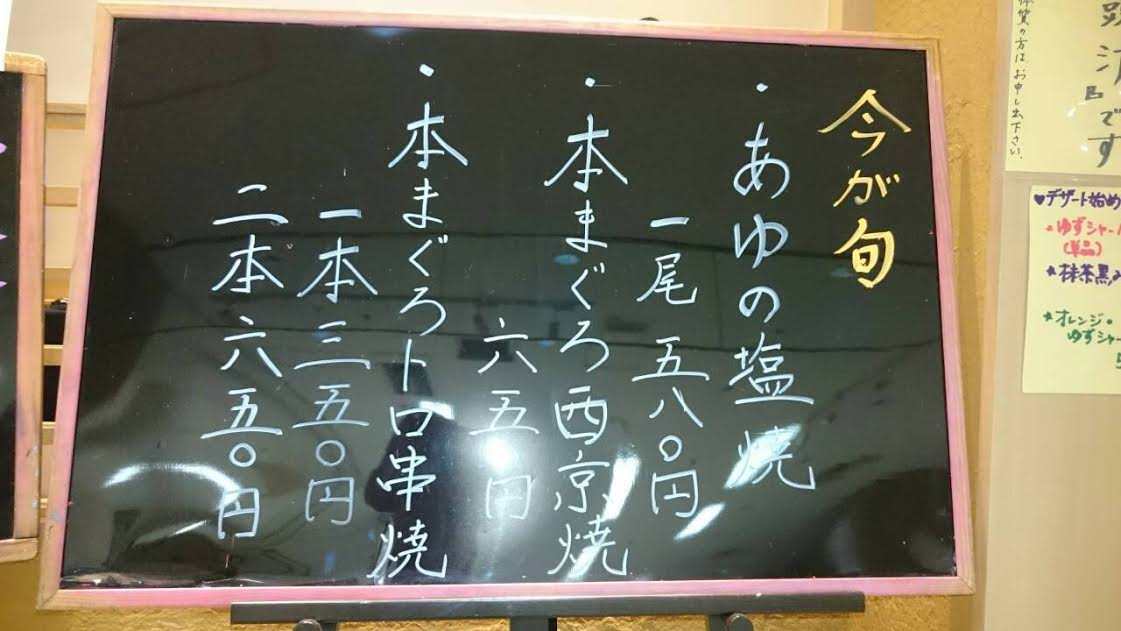 今が旬
・あゆの塩焼
一尾 五八〇円
・本まぐろ西京焼
六五〇円
・本まぐろトロ串焼
一本 三五〇円
二本 六五〇円
体質の方はお申し出下さい。
です
♥デザート始め
★ゆずシャー
(単品)
★抹茶黒
★オレンジ・
ゆずシャー